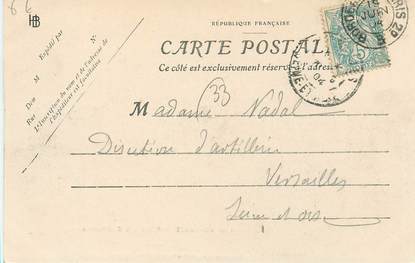 86
HB
RÉPUBLIQUE FRANÇAISE
CARTE POSTALE
Ce côté est exclusivement réservé à l'adresse
N°
Expédié par
M
Dem
Rue
L'Inscription du nom et de l'adresse de
l'Expéditeur est facultative
PARIS 20
JUIN
5
04
(33)
Madame Nadal
Direction d'artillerie
Versailles
Seine et Oise